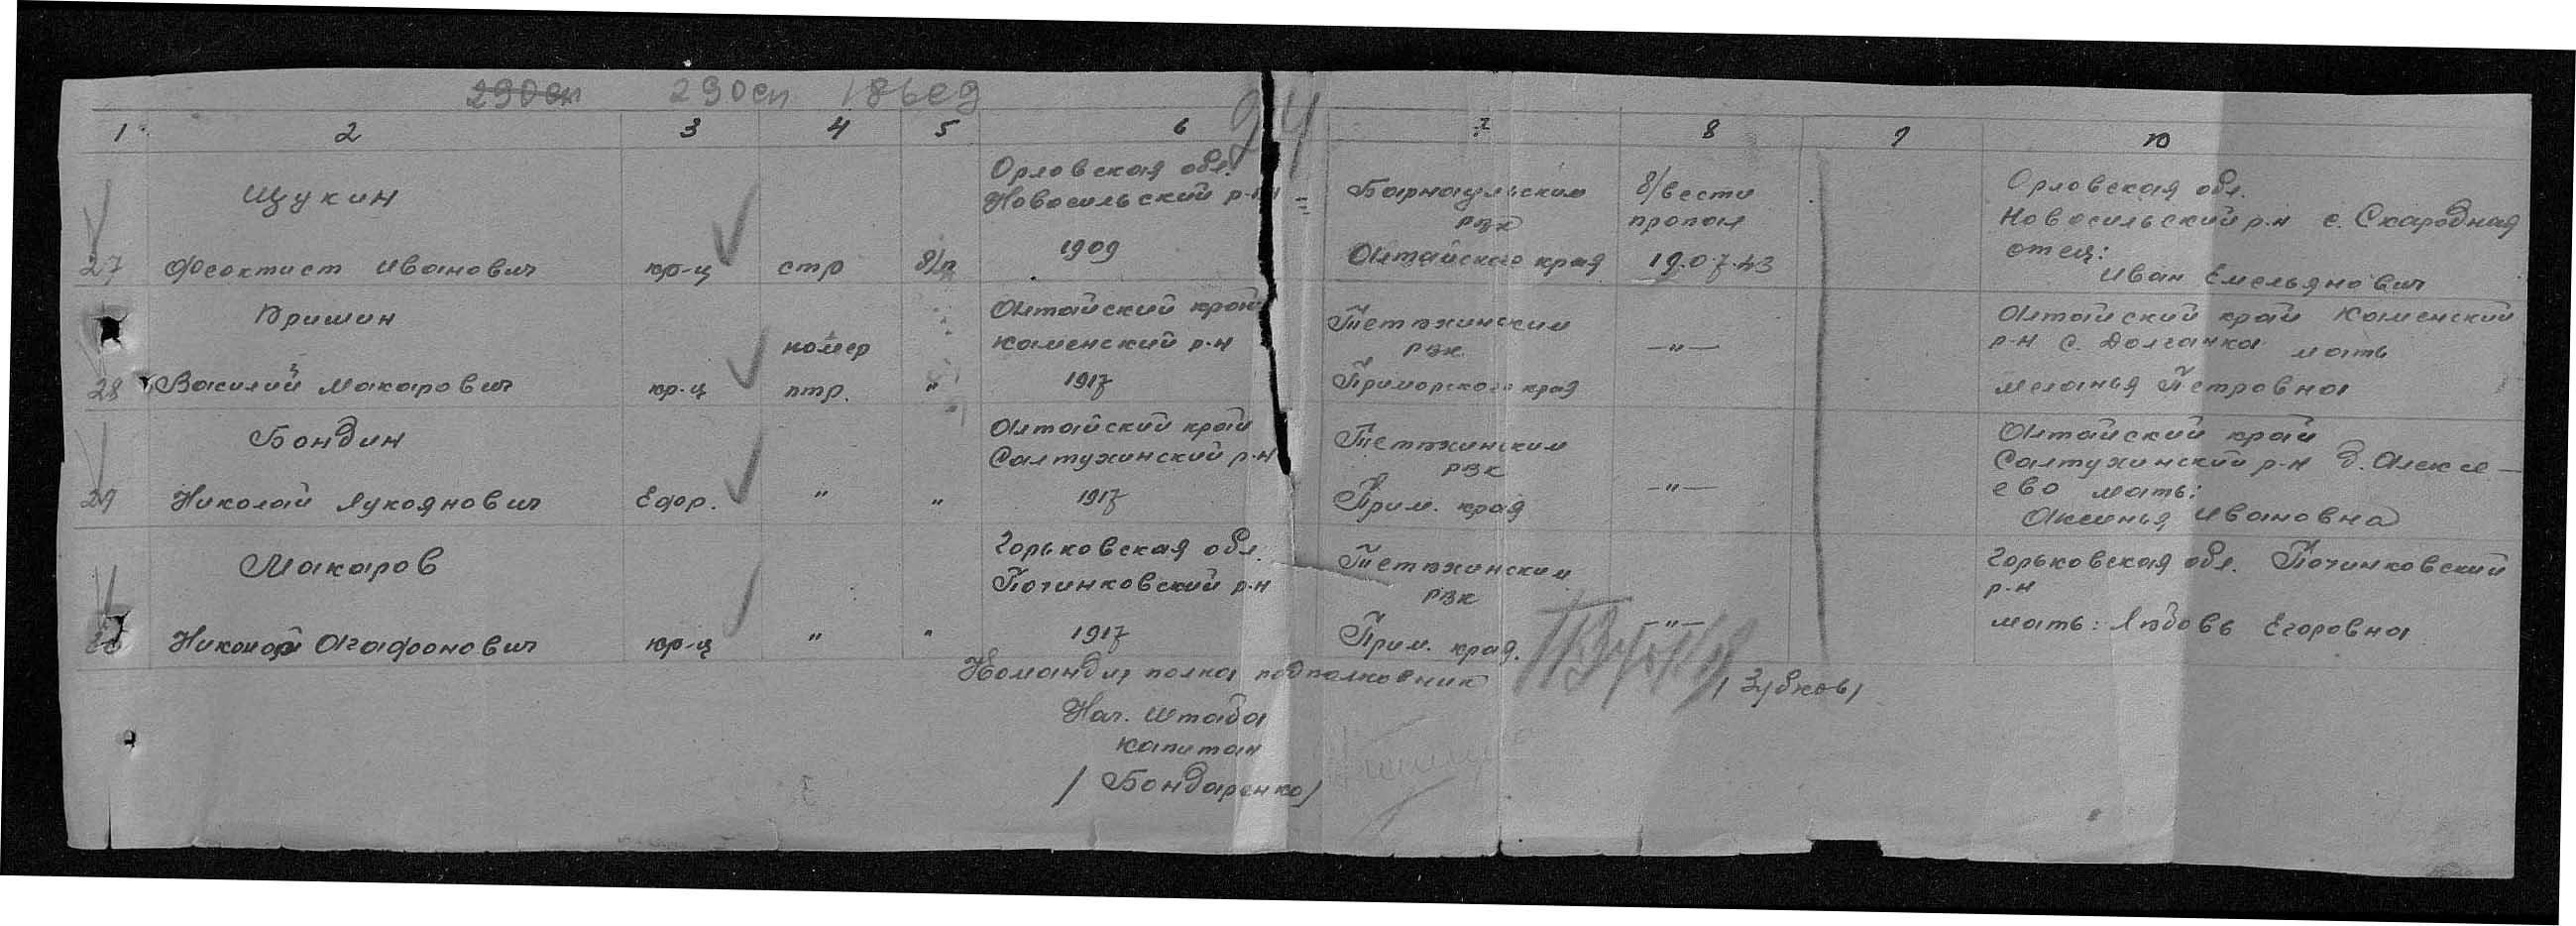 290сп 290сп 186сд
94
1 2 3 4 5 6 7 8 9 10
Щукин
Феоктист Иванович
27
кр-ц
стр
б/п
Орловская обл.
Новосильский р-н
1909
Барнаульским
РВК
Алтайского края
б/вести
пропал
19.07.43
Орловская обл.
Новосильский р-н с. Скародная
отец:
Иван Емельянович
28
Василий Макарович
кр-ц
номер
птр.
"
Алтайский край
Каменский р-н
1917
Тетюхинским
РВК
Приморского края
—"—
Алтайский край Каменский
р-н с. Долганка мать
Меланья Петровна
Бондин
29
Николай Лукоянович
Ефр.
"
"
Алтайский край
Салтухинский р-н
1917
Тетюхинским
РВК
Прим. края
—"—
Алтайский край
Салтухинский р-н д. Алексе-
ево мать:
Аксинья Ивановна
Макаров
Николай Агафонович
кр-ц
"
"
Горьковская обл.
Починковский р-н
1917
Тетюхинским
РВК
Прим. края.
—"—
Горьковская обл. Починковский
р-н
мать: Любовь Егоровна
Команди полка подполковник
/Зубков/
Нач. Штаба
капитан
/Бондаренко/